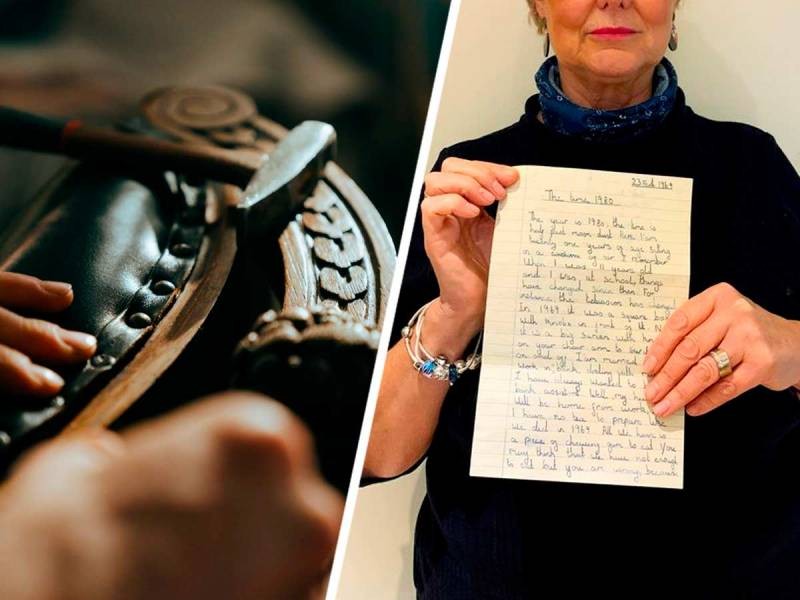 1969
The time 1980
The year is 1980, the time is
half past moon dust time. I am
twenty one years of age siting
on a of air. I remember
When I was 11 years old
and I was at school, things
have changed since then. For
instance the has changed
In 1969 it was a square box
With knobs in front of it.
it is a big screen with
on your chair arm to
on and off. I am married
work in bank dealing with
I have always wanted to
bank Well my
Will be home from work
I have no tea to prepare like
We did in 1969. All we have is
a piece of chewing gum to eat. You
may think that we have not enough
to eat but you are wrong, because